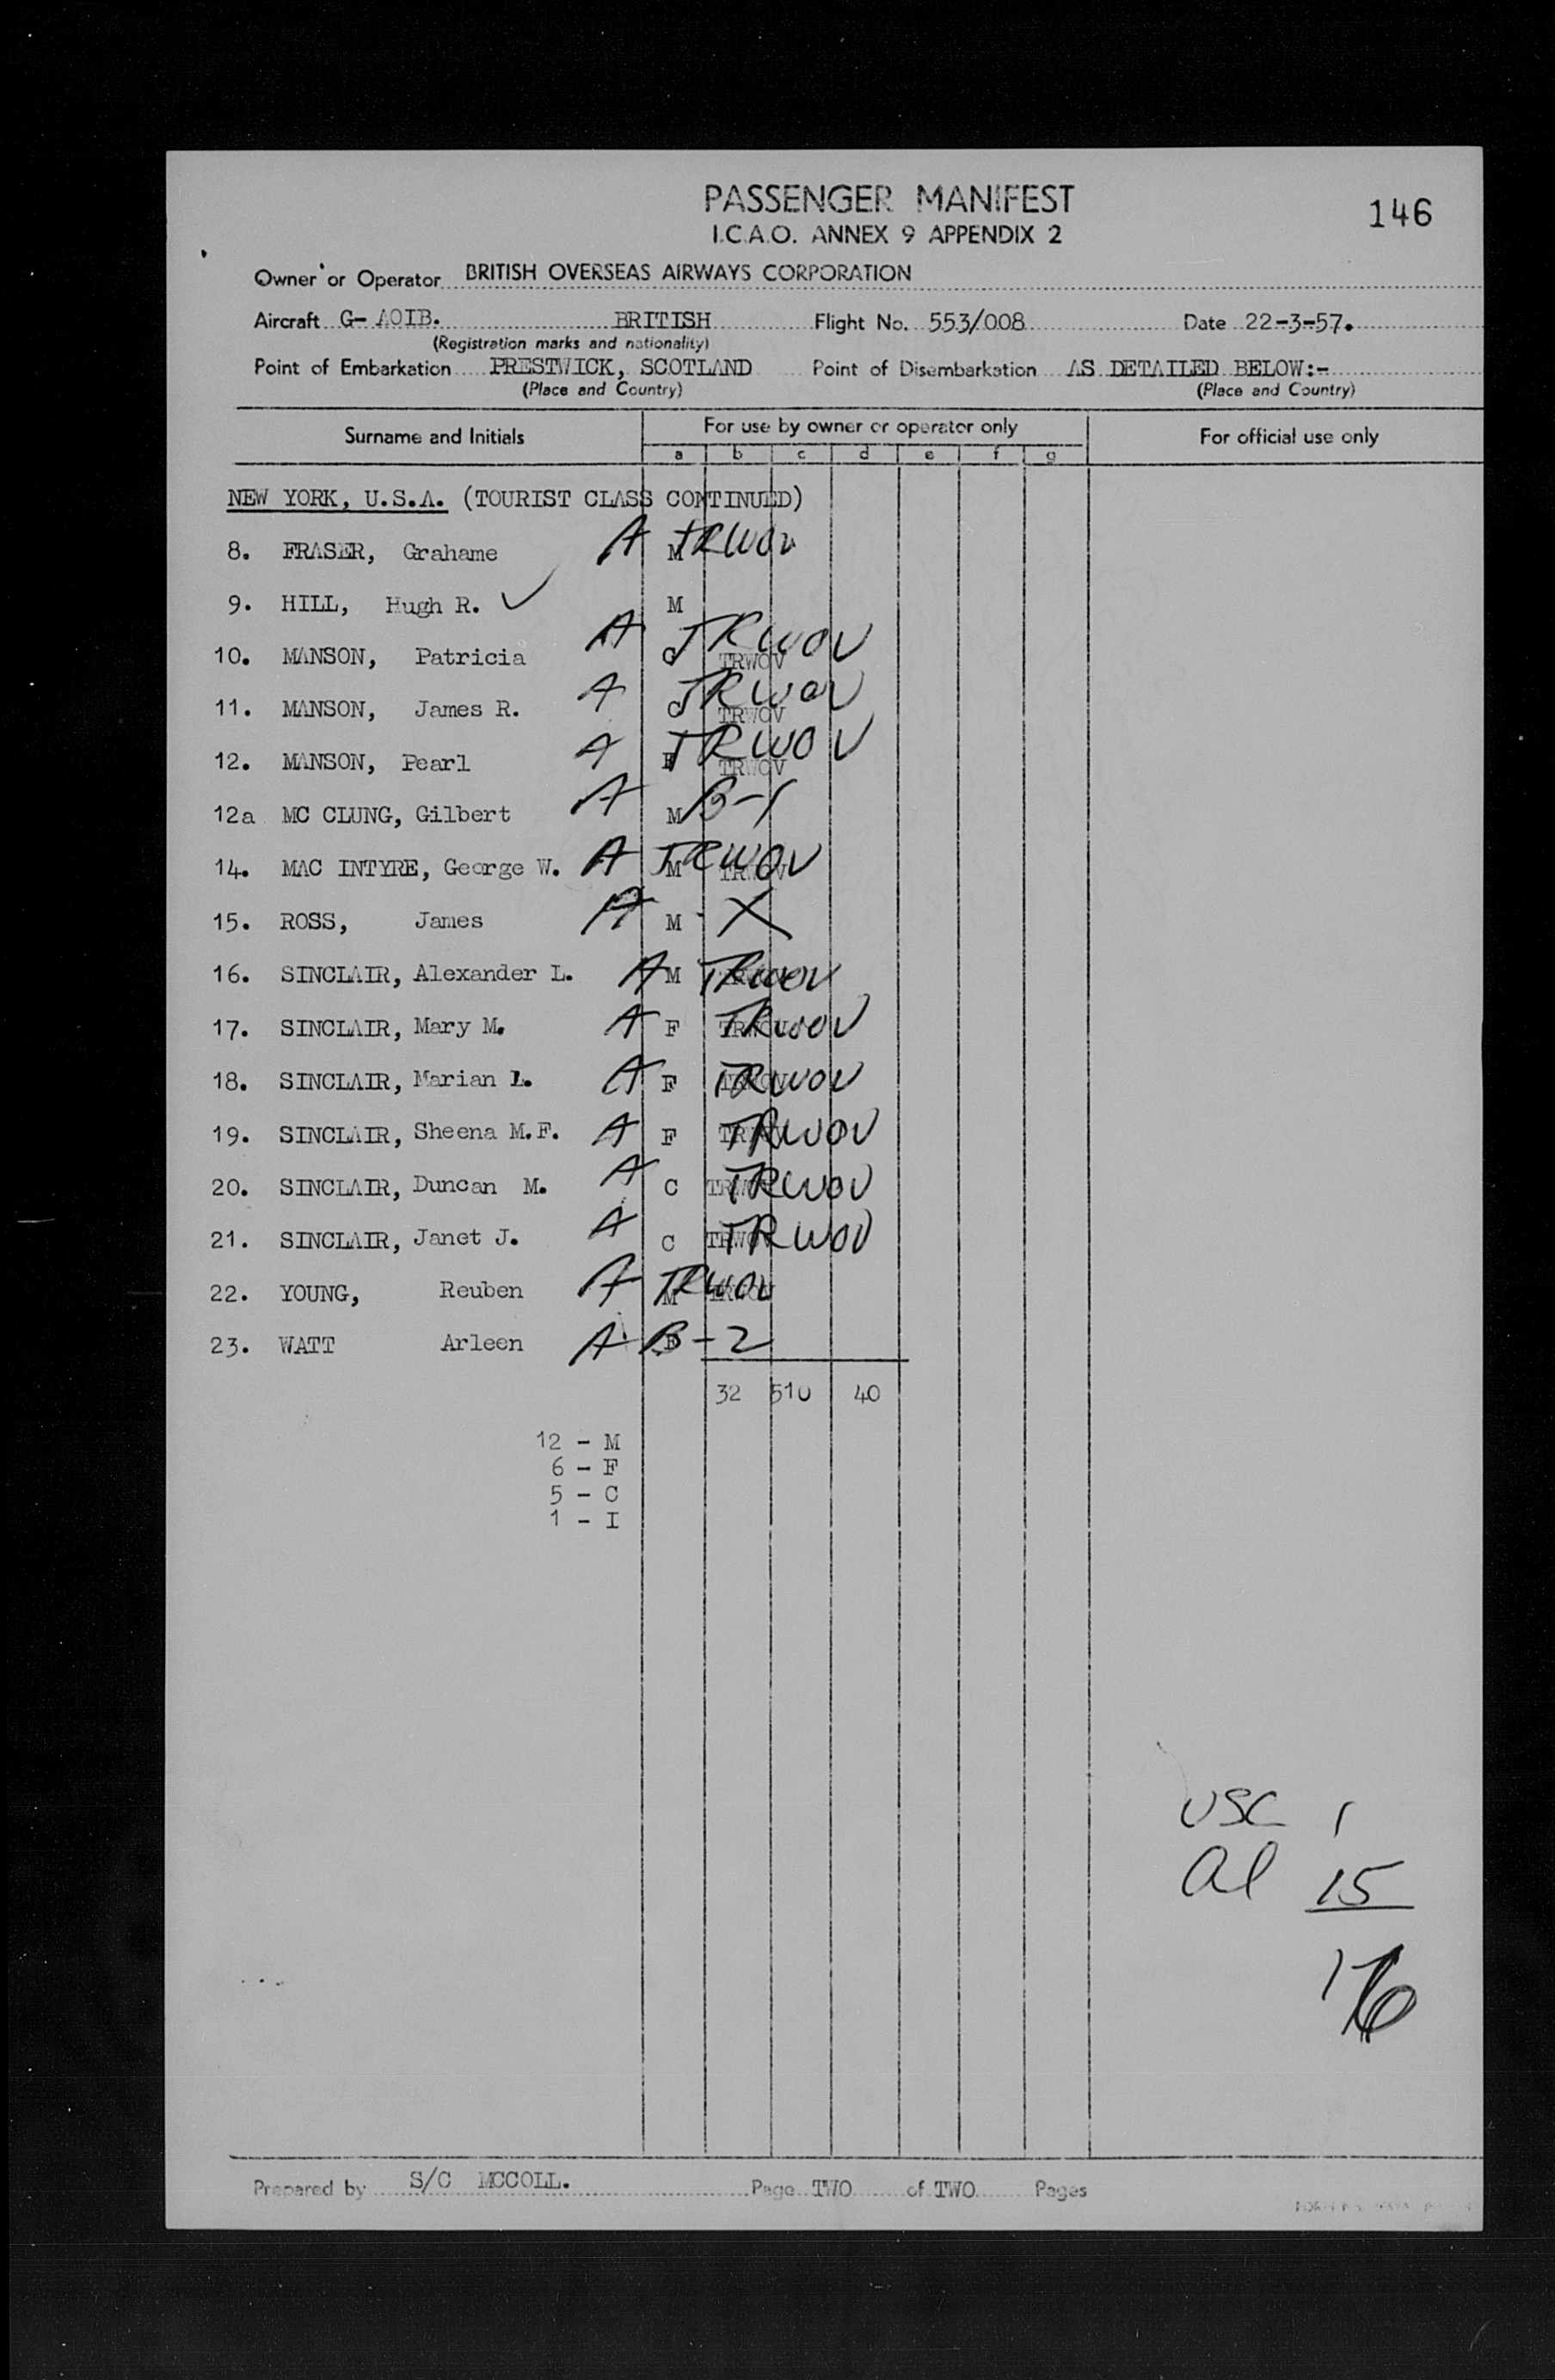 PASSENGER MANIFEST
146
I.C.A.O. ANNEX 9 APPENDIX 2
Owner or Operator BRITISH OVERSEAS AIRWAYS CORPORATION
Aircraft G- AOIB. BRITISH Flight No. 553/008 Date 22-3-57.
(Registration marks and nationality)
Point of Embarkation PRESTWICK, SCOTLAND Point of Disembarkation AS DETAILED BELOW:-
(Place and Country) (Place and Country)
Surname and Initials For use by owner or operator only For official use only
a b c d e f g
NEW YORK, U.S.A. (TOURIST CLASS CONTINUED)
8. FRASER, Grahame A M TRWOV
9. HILL, Hugh R. ✓ M
10. MANSON, Patricia A C TRWOV TRWOV
11. MANSON, James R. A C TRWOV TRWOV
12. MANSON, Pearl A F TRWOV TRWOV
12a MC CLUNG, Gilbert A M B-1
14. MAC INTYRE, George W. A M TRWOV TRWOV
15. ROSS, James A M X
16. SINCLAIR, Alexander L. A M TRWOV
17. SINCLAIR, Mary M. A F TRWOV TRWOV
18. SINCLAIR, Marian L. A F TRWOV TRWOV
19. SINCLAIR, Sheena M.F. A F TRWOV TRWOV
20. SINCLAIR, Duncan M. A C TRWOV TRWOV
21. SINCLAIR, Janet J. A C TRWOV TRWOV
22. YOUNG, Reuben A M TRWOV TRWOV
23. WATT Arleen A F B-2
32 510 40
12 - M
6 - F
5 - C
1 - I
USC 1
al 15
16
Prepared by S/C MCCOLL. Page TWO of TWO Pages